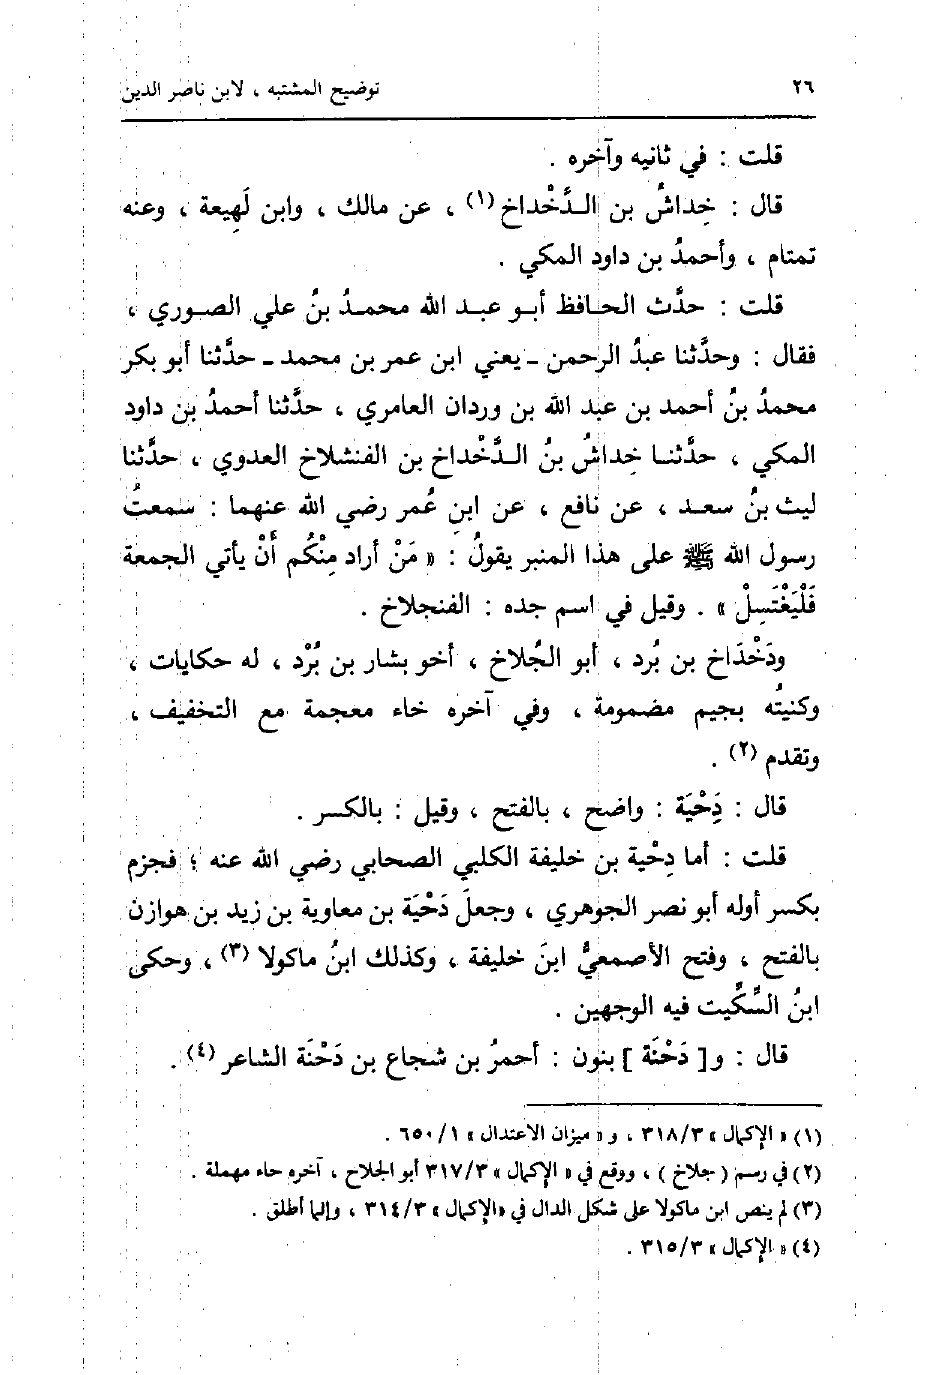 ٢٦ توضيح المشتبه ، لابن ناصر الدين
قلت : في ثانيه وآخره .
قال : خِداشُ بن الدَّخْداخ (١) ، عن مالك ، وابن لَهِيعة ، وعنه
تمتام ، وأحمدُ بن داود المكي .
قلت : حدَّث الحافظ أبو عبد الله محمدُ بنُ علي الصوري ،
فقال : وحدَّثنا عبدُ الرحمن ـ يعني ابن عمر بن محمد ـ حدَّثنا أبو بكر
محمدُ بنُ أحمد بن عبد الله بن وردان العامري ، حدَّثنا أحمدُ بن داود
المكي ، حدَّثنا خِداشُ بنُ الدَّخْداخ بن الفنشلاخ العدوي ، حدَّثنا
ليث بنُ سعد ، عن نافع ، عن ابنِ عُمر رضي الله عنهما : سمعتُ
رسول الله ﷺ على هذا المنبر يقولُ : « مَنْ أراد مِنْكُم أَنْ يأتي الجمعة
فَلْيَغْتَسِلْ » . وقيل في اسم جده : الفنجلاخ .
ودَخْدَاخ بن بُرد ، أبو الجُلاخ ، أخو بشار بن بُرْد ، له حكايات ،
وكنيتُه بجيم مضمومة ، وفي آخره خاء معجمة مع التخفيف ،
وتقدم (٢) .
قال : دَِحْيَة : واضح ، بالفتح ، وقيل : بالكسر .
قلت : أما دِحْية بن خليفة الكلبي الصحابي رضي الله عنه ؛ فجزم
بكسر أوله أبو نصر الجوهري ، وجعلَ دَحْيَة بن معاوية بن زيد بن هوازن
بالفتح ، وفتح الأصمعيُّ ابنَ خليفة ، وكذلك ابنُ ماكولا (٣) ، وحكى
ابنُ السِّكِّيت فيه الوجهين .
قال : و[ دَحْنَة ] بنون : أحمرُ بن شجاع بن دَحْنَة الشاعر (٤) .
(١) « الإكمال » ٣١٨/٣ ، و« ميزان الاعتدال » ٦٥٠/١ .
(٢) في رسم ( جلاخ ) ، ووقع في « الإكمال » ٣١٧/٣ أبو الجلاح ، آخره حاء مهملة .
(٣) لم ينص ابن ماكولا على شكل الدال في «الإكمال » ٣١٤/٣ ، وإنما أطلق .
(٤) « الإكمال » ٣١٥/٣ .